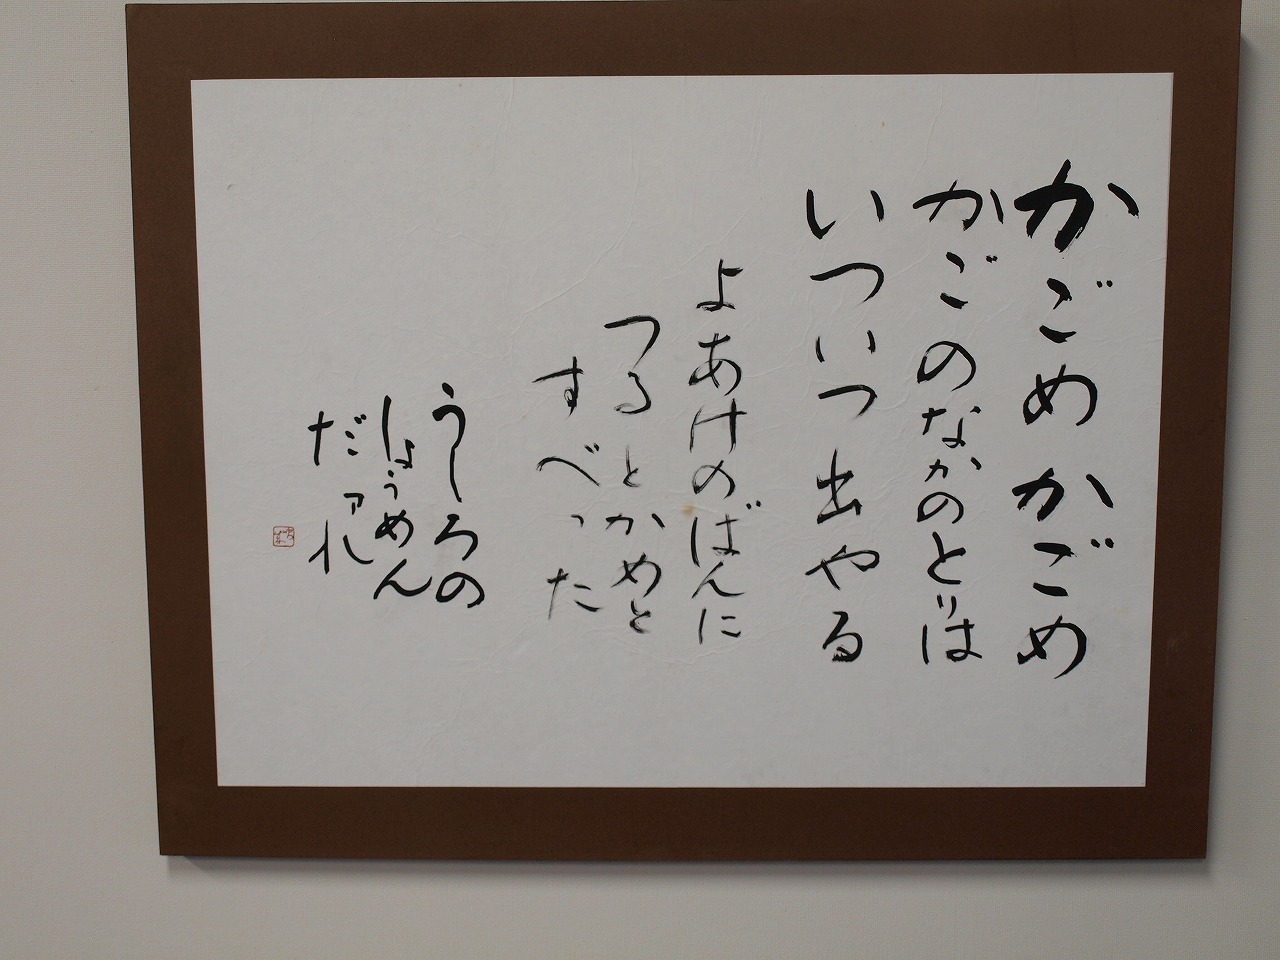 かごめかごめ
かごのなかのとりは
いついつ出やる
よあけのばんに
つるとかめと
すべった
うしろの
しょうめん
だァれ